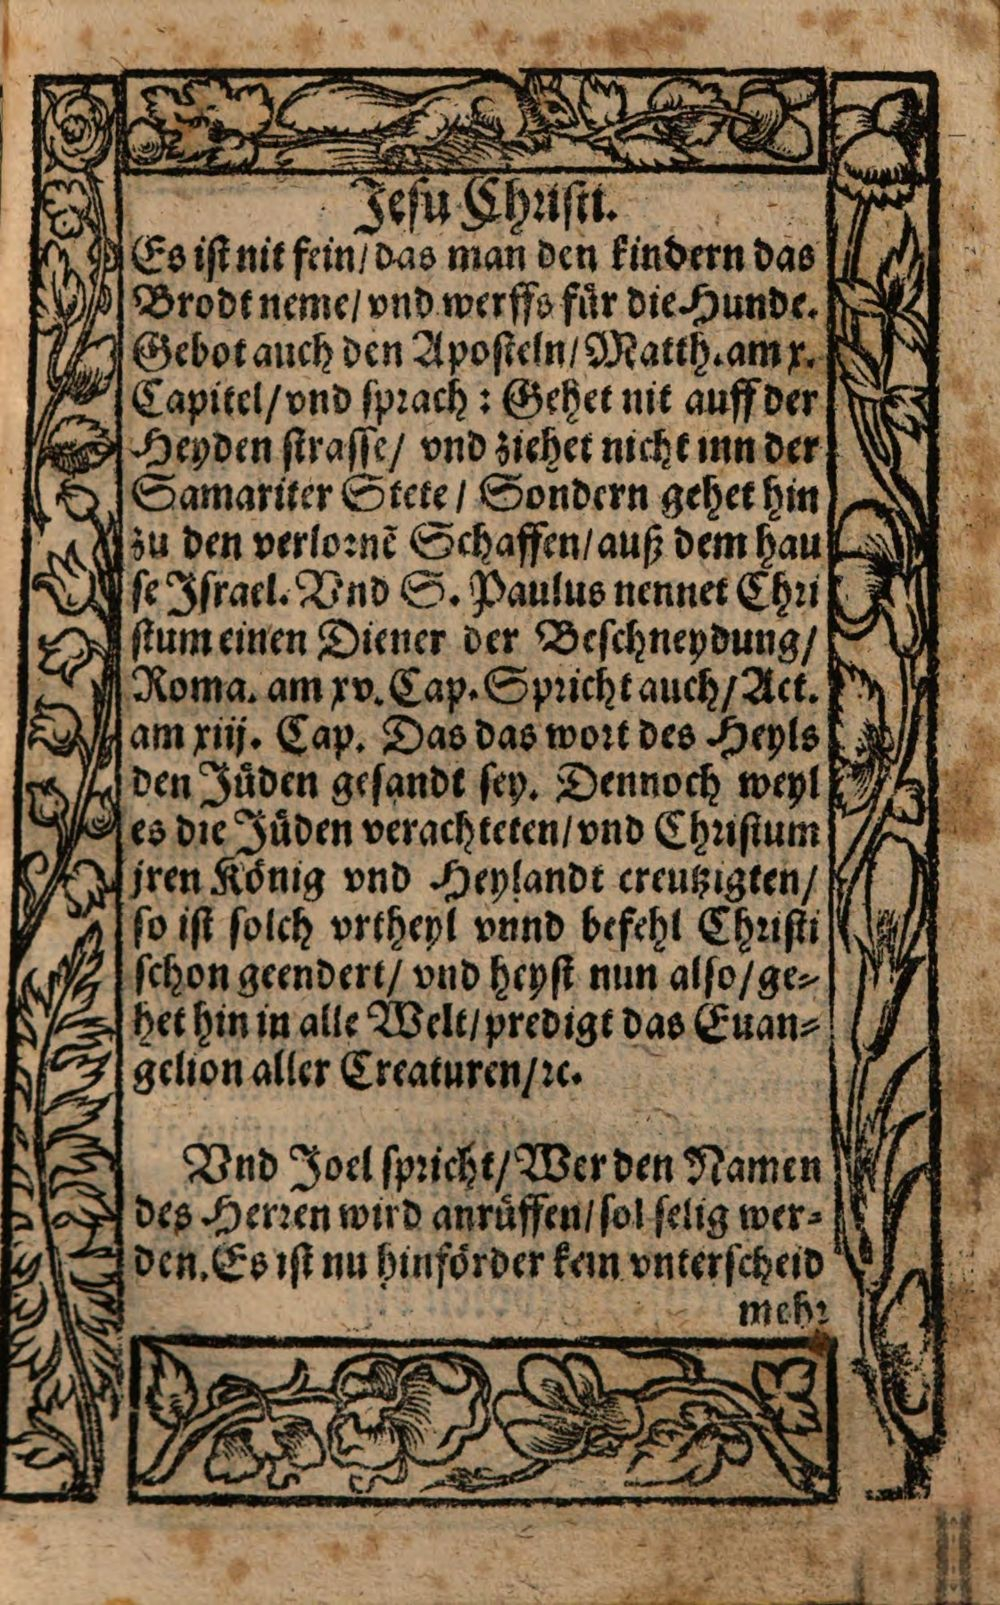 Jesu Christi.
Es ist nit fein/ das man den kindern das
Brodt neme/ vnd werffs für die Hunde.
Gebot auch den Aposteln/ Matth. am x.
Capitel/ vnd sprach : Gehet nit auff der
Heyden strasse/ vnd ziehet nicht inn der
Samariter Stete/ Sondern gehet hin
zu den verlornẽ Schaffen/ auß dem hau
se Israel. Vnd S. Paulus nennet Chri
stum einen Diener der Beschneydung/
Roma. am xv. Cap. Spricht auch/ Act.
am xiij. Cap. Das das wort des Heyls
den Jüden gesandt sey. Dennoch weyl
es die Jüden verachteten/ vnd Christum
jren König vnd Heylandt creutzigten/
so ist solch vrtheyl vnnd befehl Christi
schon geendert/ vnd heyst nun also/ ge-
het hin in alle Welt/ predigt das Euan-
gelion aller Creaturen/ ꝛc.
Vnd Joel spricht/ Wer den Namen
des Herren wird anrüffen/ sol selig wer-
den. Es ist nu hinförder kein vnterscheid
mehr